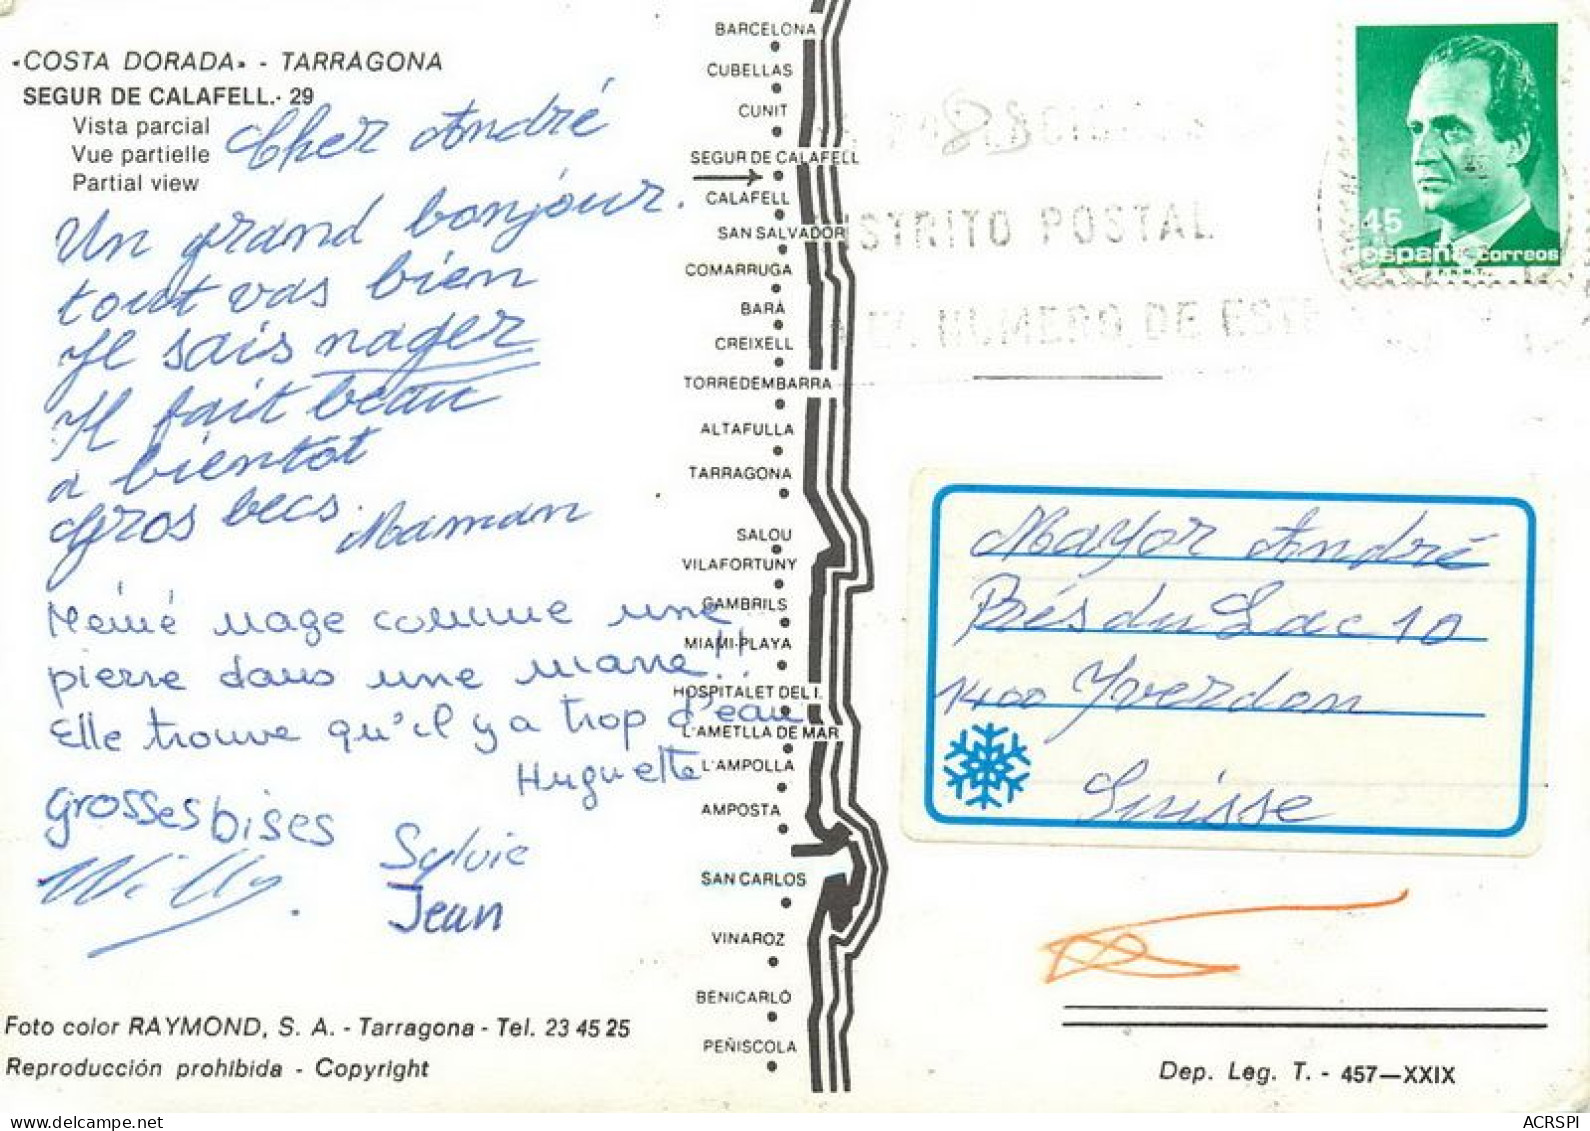 «COSTA DORADA» - TARRAGONA
SEGUR DE CALAFELL.- 29
Vista parcial
Vue partielle
Partial view
Cher André
Un grand bonjour.
tout vas bien
Je sais nager
Il fait beau
a bientot
Gros becs. Maman
Mémé nage comme une
pierre dans une mare!!
Elle trouve qu'il y a trop d'eau
Huguette
Grosses bises
Willy.
Sylvie
Jean
Foto color RAYMOND, S. A. - Tarragona - Tel. 23 45 25
Reproducción prohibida - Copyright
BARCELONA
CUBELLAS
CUNIT
SEGUR DE CALAFELL
CALAFELL
SAN SALVADOR
COMARRUGA
BARÁ
CREIXELL
TORREDEMBARRA
ALTAFULLA
TARRAGONA
SALOU
VILAFORTUNY
CAMBRILS
MIAMI-PLAYA
HOSPITALET DEL I.
L'AMETLLA DE MAR
L'AMPOLLA
AMPOSTA
SAN CARLOS
VINAROZ
BENICARLÓ
PEÑISCOLA
STRITO POSTAL
NUMERO DE
45
españa correos
F.N.M.T.
Mayor André
Prés du Lac 10
1400 Yverdon
Suisse
Dep. Leg. T. - 457—XXIX
ACRSPI